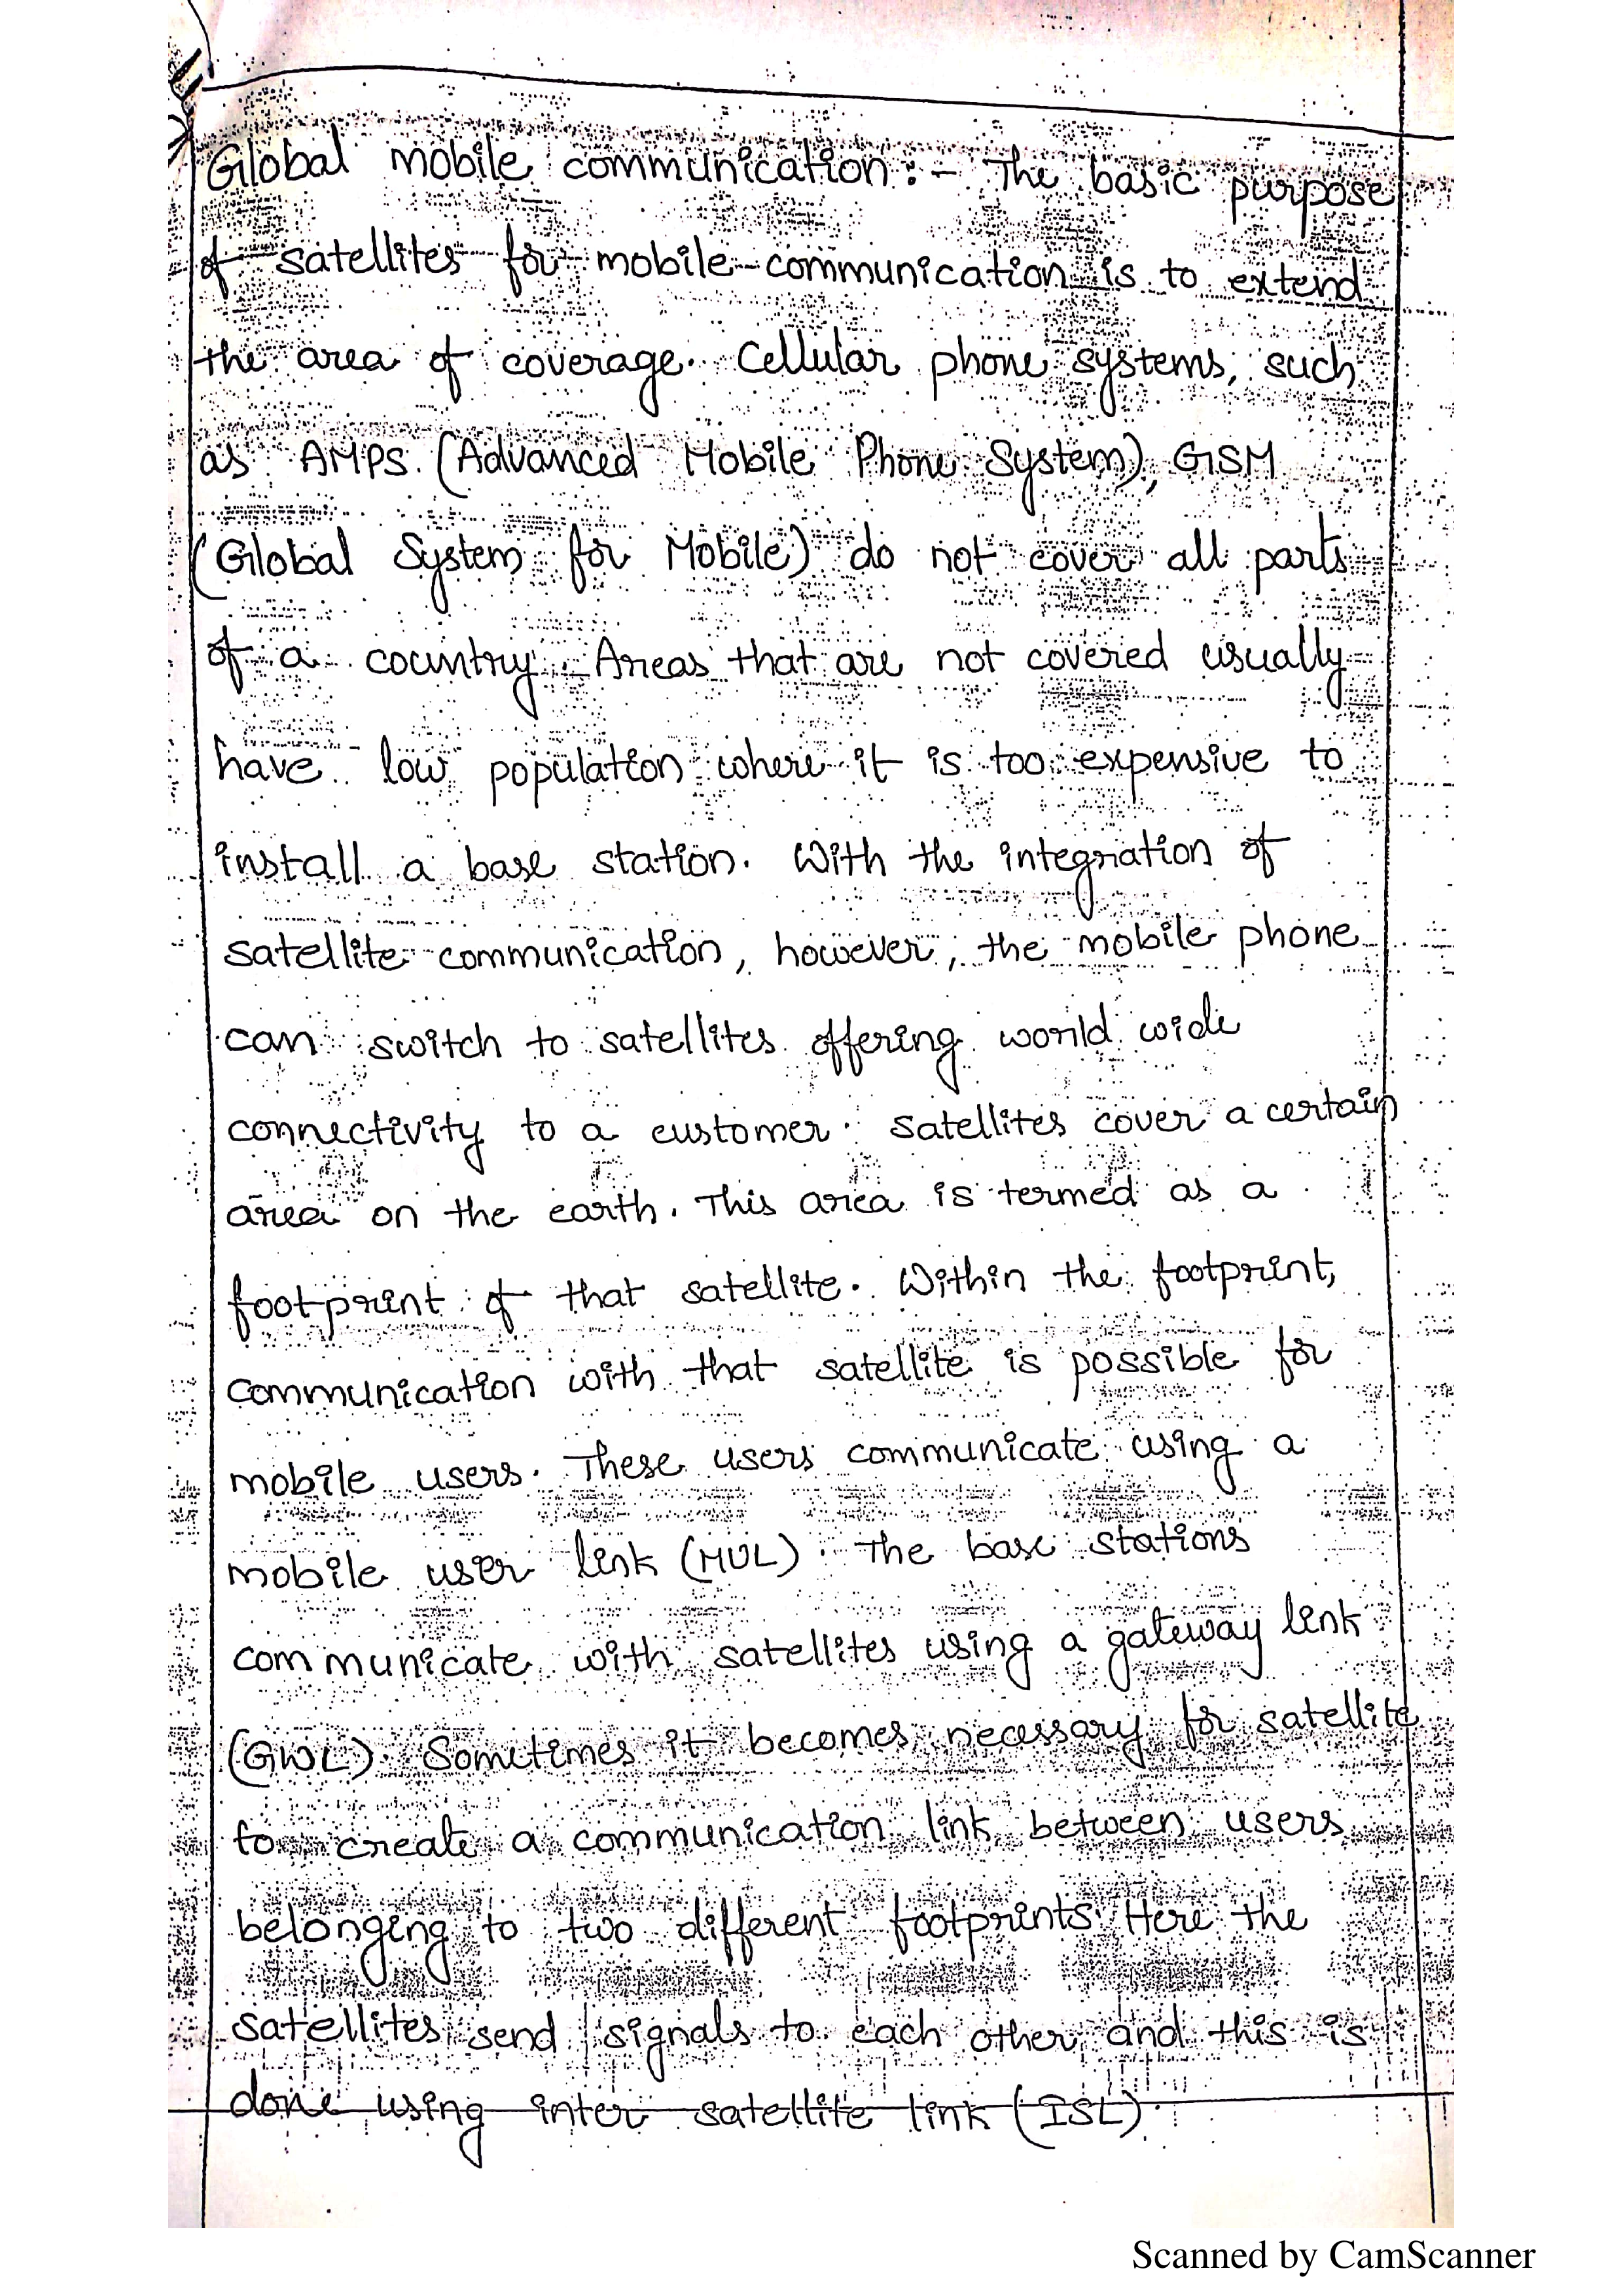 Global mobile communication :- The basic purpose
of satellites for mobile communication is to extend
the area of coverage. Cellular phone systems, such
as AMPS (Advanced Mobile Phone System), GSM
(Global System for Mobile) do not cover all parts
of a country. Areas that are not covered usually
have low population where it is too expensive to
install a base station. With the integration of
satellite communication, however, the mobile phone
can switch to satellites offering world wide
connectivity to a customer. Satellites cover a certain
area on the earth. This area is termed as a
footprint of that satellite. Within the footprint,
communication with that satellite is possible for
mobile users. These users communicate using a
mobile user link (MUL). The base stations
communicate with satellites using a gateway link
(GWL). Sometimes it becomes necessary for satellite
to create a communication link between users
belonging to two different footprints. Here the
satellites send signals to each other and this is
done using inter satellite link (ISL).
Scanned by CamScanner